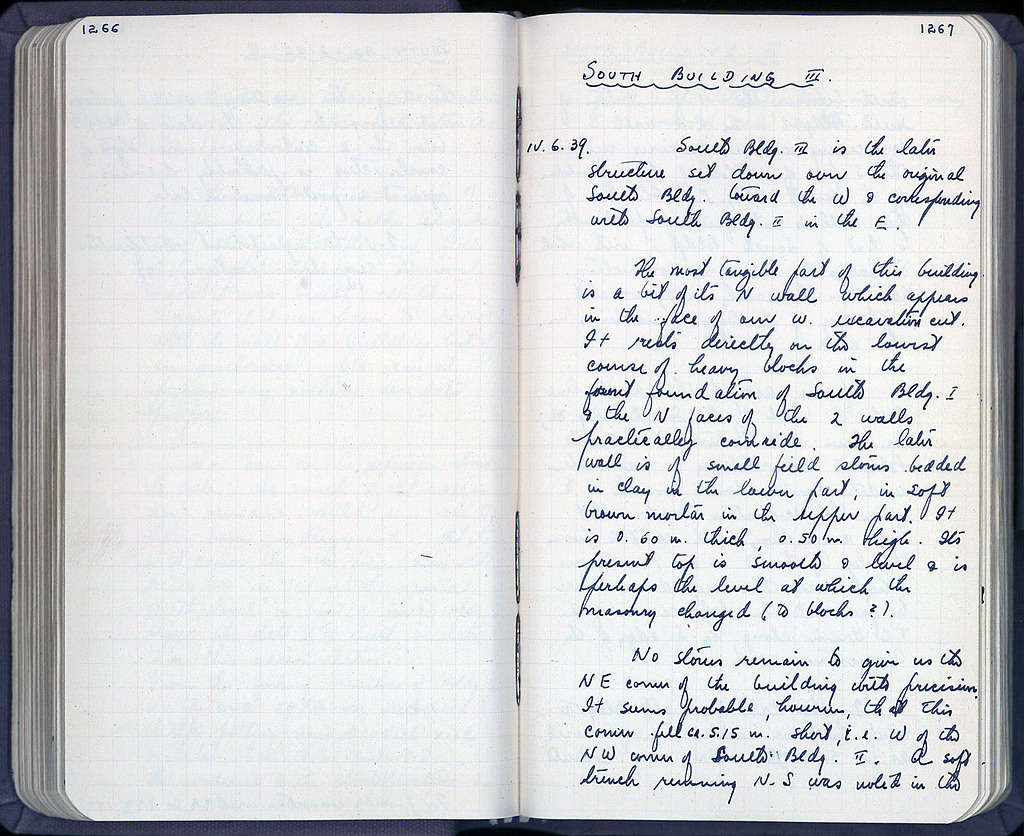 1266
1267
SOUTH BUILDING III.
IV. 6. 39. South Bldg. III is the later
structure set down over the original
South Bldg. toward the W & corresponding
with South Bldg. II in the E.
The most tangible part of this building
is a bit of its N wall which appears
in the face of our W. excavation cut.
It rests directly on the lowest
course of heavy blocks in the
foundation of South Bldg. I
& the N faces of the 2 walls
practically coincide. The later
wall is of small field stones bedded
in clay in the lower part, in soft
brown mortar in the upper part. It
is 0.60 m. thick, 0.50 m. high. Its
present top is smooth & level & is
perhaps the level at which the
masonry changed (to blocks ?).
No stones remain to give us the
NE corner of the building with precision.
It seems probable, however, that this
corner fell ca. 5.15 m. short, i.e. W of the
NW corner of South Bldg. II. A soft
trench running N-S was noted in the